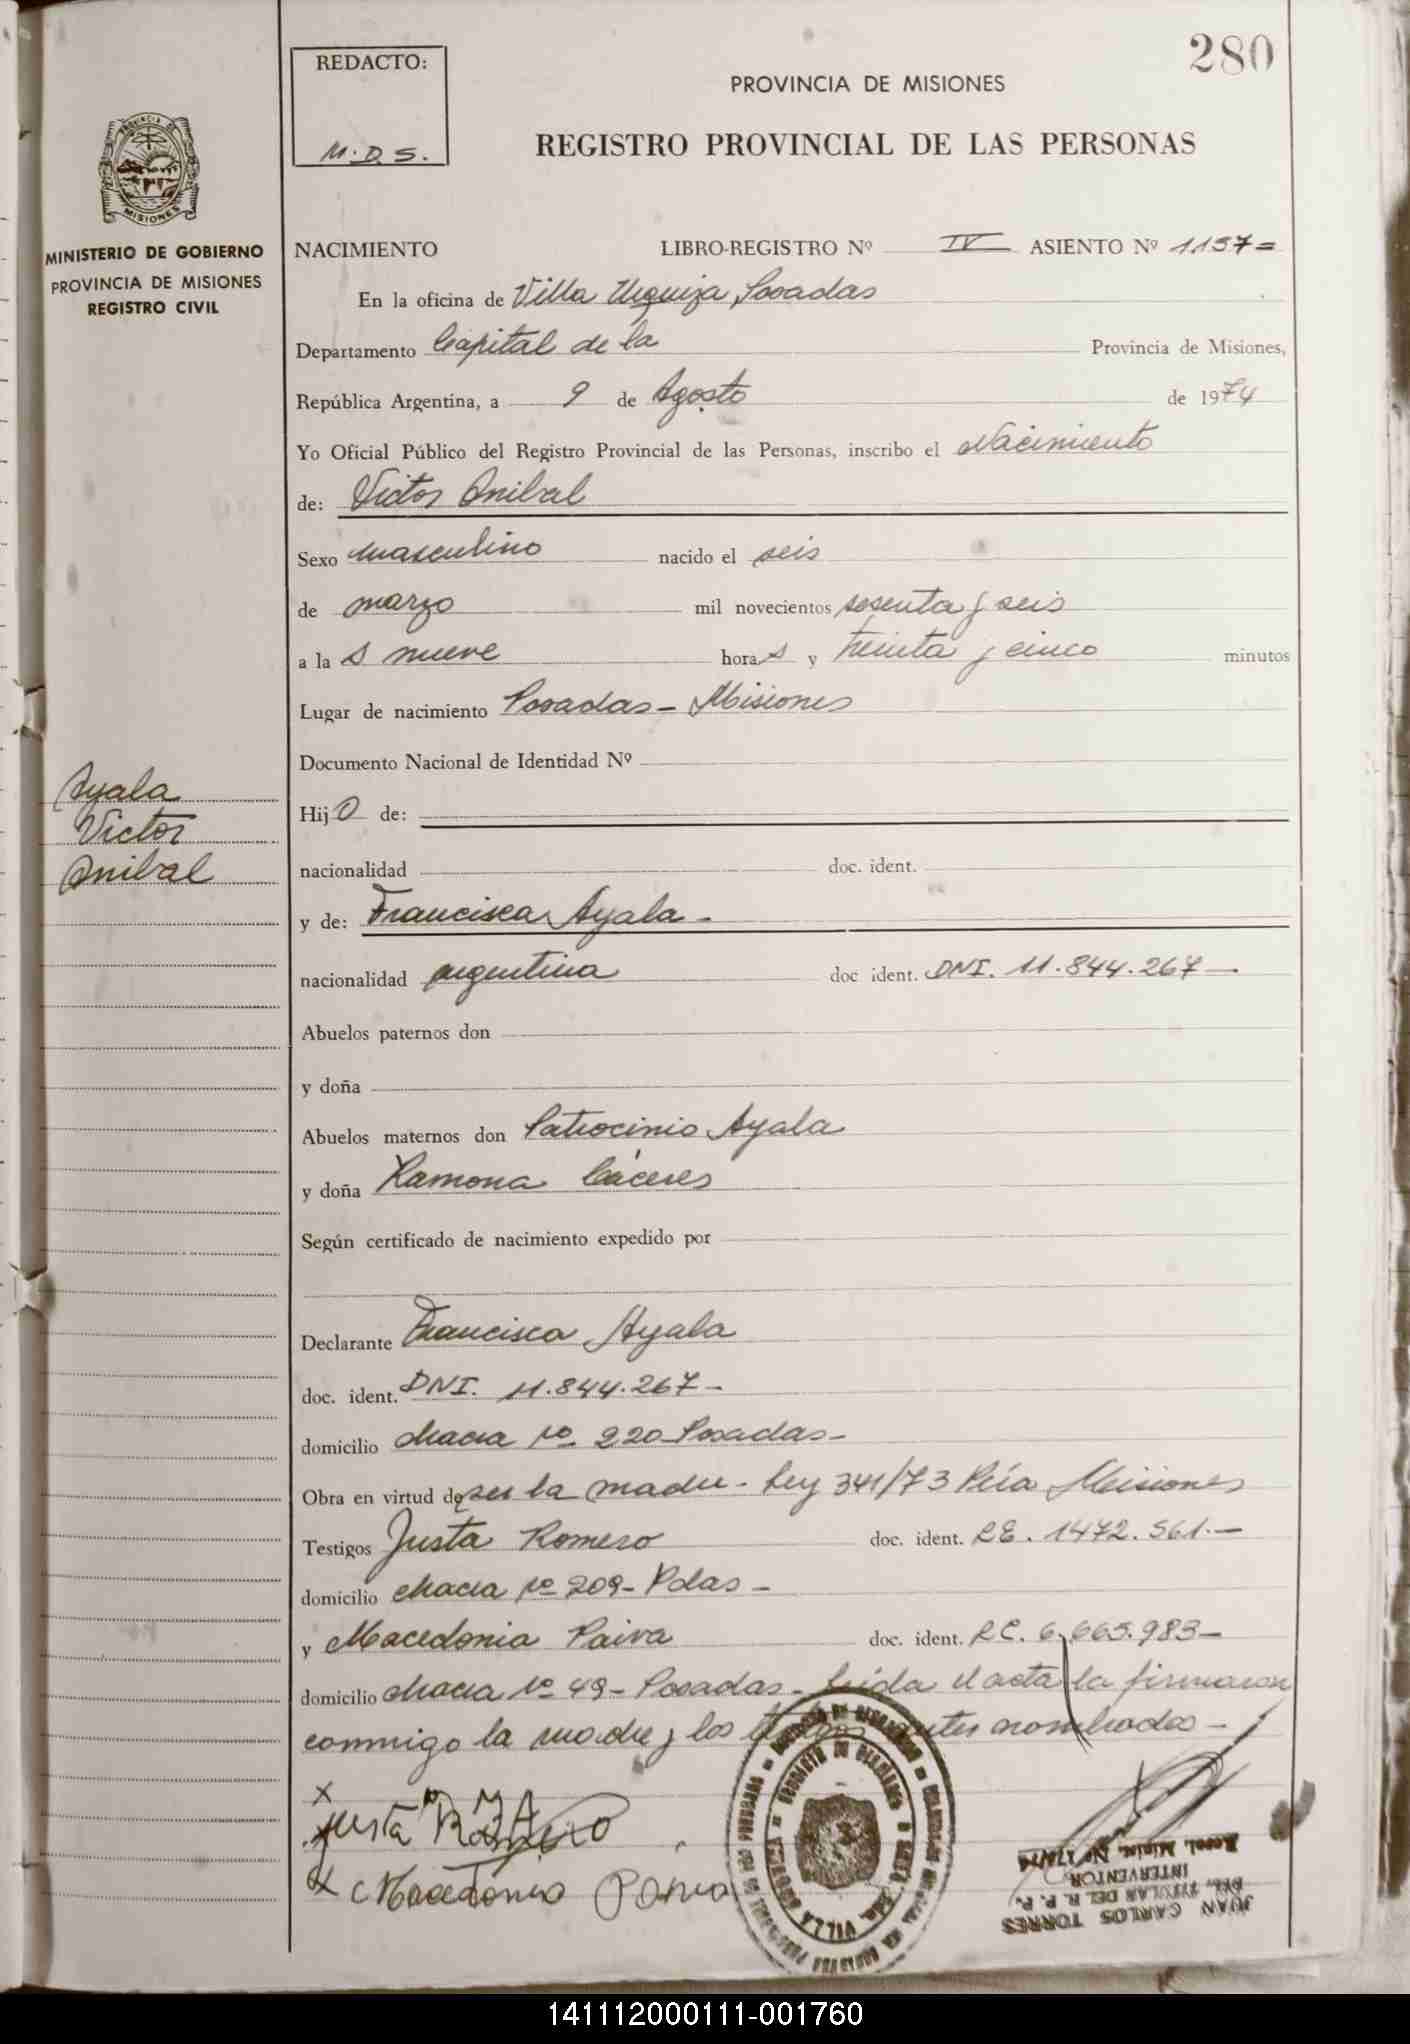 280
REDACTO:
M.D.S.
PROVINCIA DE MISIONES
REGISTRO PROVINCIAL DE LAS PERSONAS
PROVINCIA DE
MISIONES
MINISTERIO DE GOBIERNO
PROVINCIA DE MISIONES
REGISTRO CIVIL
NACIMIENTO LIBRO-REGISTRO Nº IV ASIENTO Nº 1157=
En la oficina de Villa Urquiza, Posadas
Departamento Capital de la Provincia de Misiones,
República Argentina, a 9 de Agosto de 1974
Yo Oficial Público del Registro Provincial de las Personas, inscribo el Nacimiento
de: Victor Anibal
Sexo masculino nacido el seis
de marzo mil novecientos sesenta y seis
a la s nueve hora s y treinta y cinco minutos
Lugar de nacimiento Posadas - Misiones
Documento Nacional de Identidad Nº
Ayala
Victor
Anibal
Hij o de:
nacionalidad doc. ident.
y de: Francisca Ayala -
nacionalidad argentina doc ident. DNI. 11.844.267 -
Abuelos paternos don
y doña
Abuelos maternos don Patrocinio Ayala
y doña Ramona Cáceres
Según certificado de nacimiento expedido por
Declarante Francisca Ayala
doc. ident. DNI. 11.844.267 -
domicilio chacra Nº 220 Posadas -
Obra en virtud de ser la madre - Ley 341/73 Pcia Misiones
Testigos Justa Romero doc. ident. RE. 1472.561.-
domicilio chacra Nº 209 - Pdas -
y Macedonia Paiva doc. ident. RC. 6.665.983 -
domicilio chacra Nº 49 - Posadas - Leída el acta la firmaron
conmigo la madre y los testigos antes nombrados -
x
Justa Romero
x Macedonia Paiva
VILLA
JUAN CARLOS TORRES
TITULAR DEL R. P. P.
INTERVENTOR
141112000111-001760